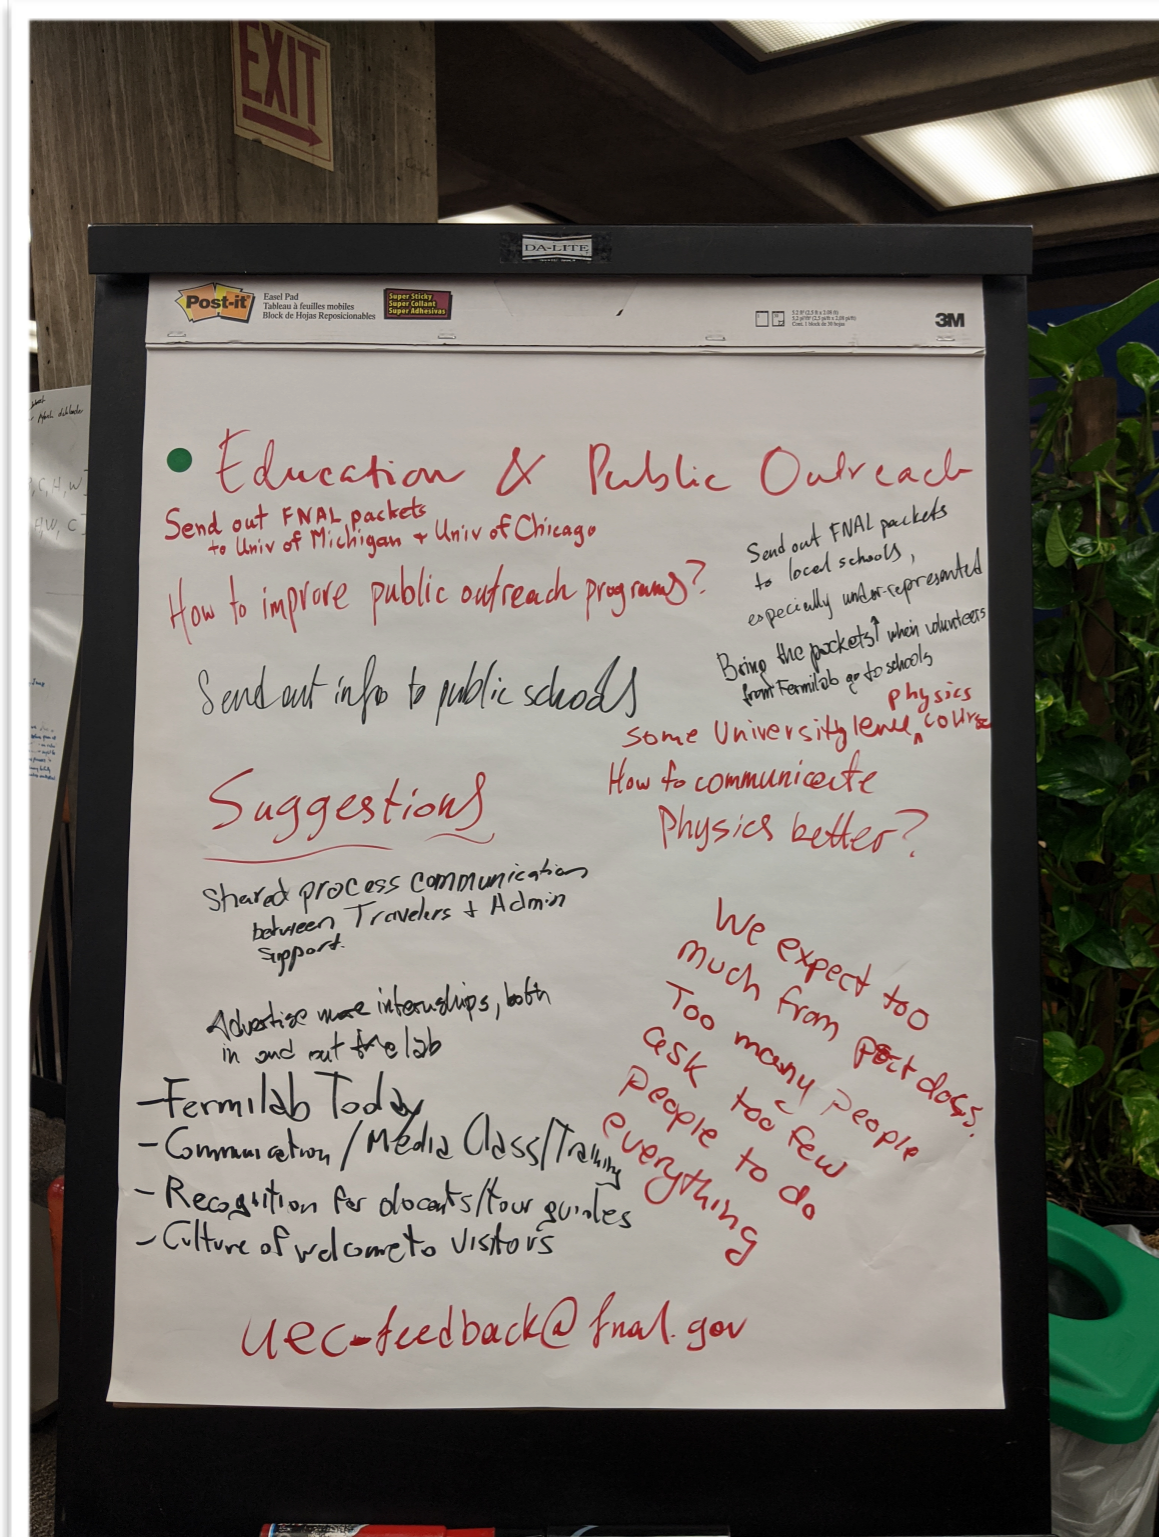 EXIT
DA-LITE
Post-it
Easel Pad
Tableau à feuilles mobiles
Block de Hojas Reposicionables
Super Sticky
Super Collant
Super Adhesivas
3M
Education & Public Outreach
Send out FNAL packets
to Univ of Michigan + Univ of Chicago
How to improve public outreach programs?
Send out info to public schools
Send out FNAL packets
to local schools,
especially under-represented
Bring the packets↑ when volunteers
from Fermilab go to schools
physics
some University level ^ course
How to communicate
Physics better?
Suggestions
Shared process communication
between Travelers + Admin
Support.
Advertise more internships, both
in and out the lab
-Fermilab Today
- Communication/Media Class/Training
- Recognition for docents/tour guides
- Culture of welcome to visitors
We expect too
much from post docs.
Too many people
ask too few
people to do
everything
uec-feedback@fnal.gov